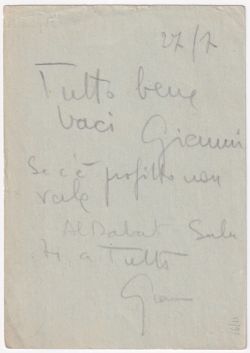 27/7
Tutto bene
baci Gianni
Se c'è profitto non
vale
Al Dabat Salu
ti a Tutto
Gian